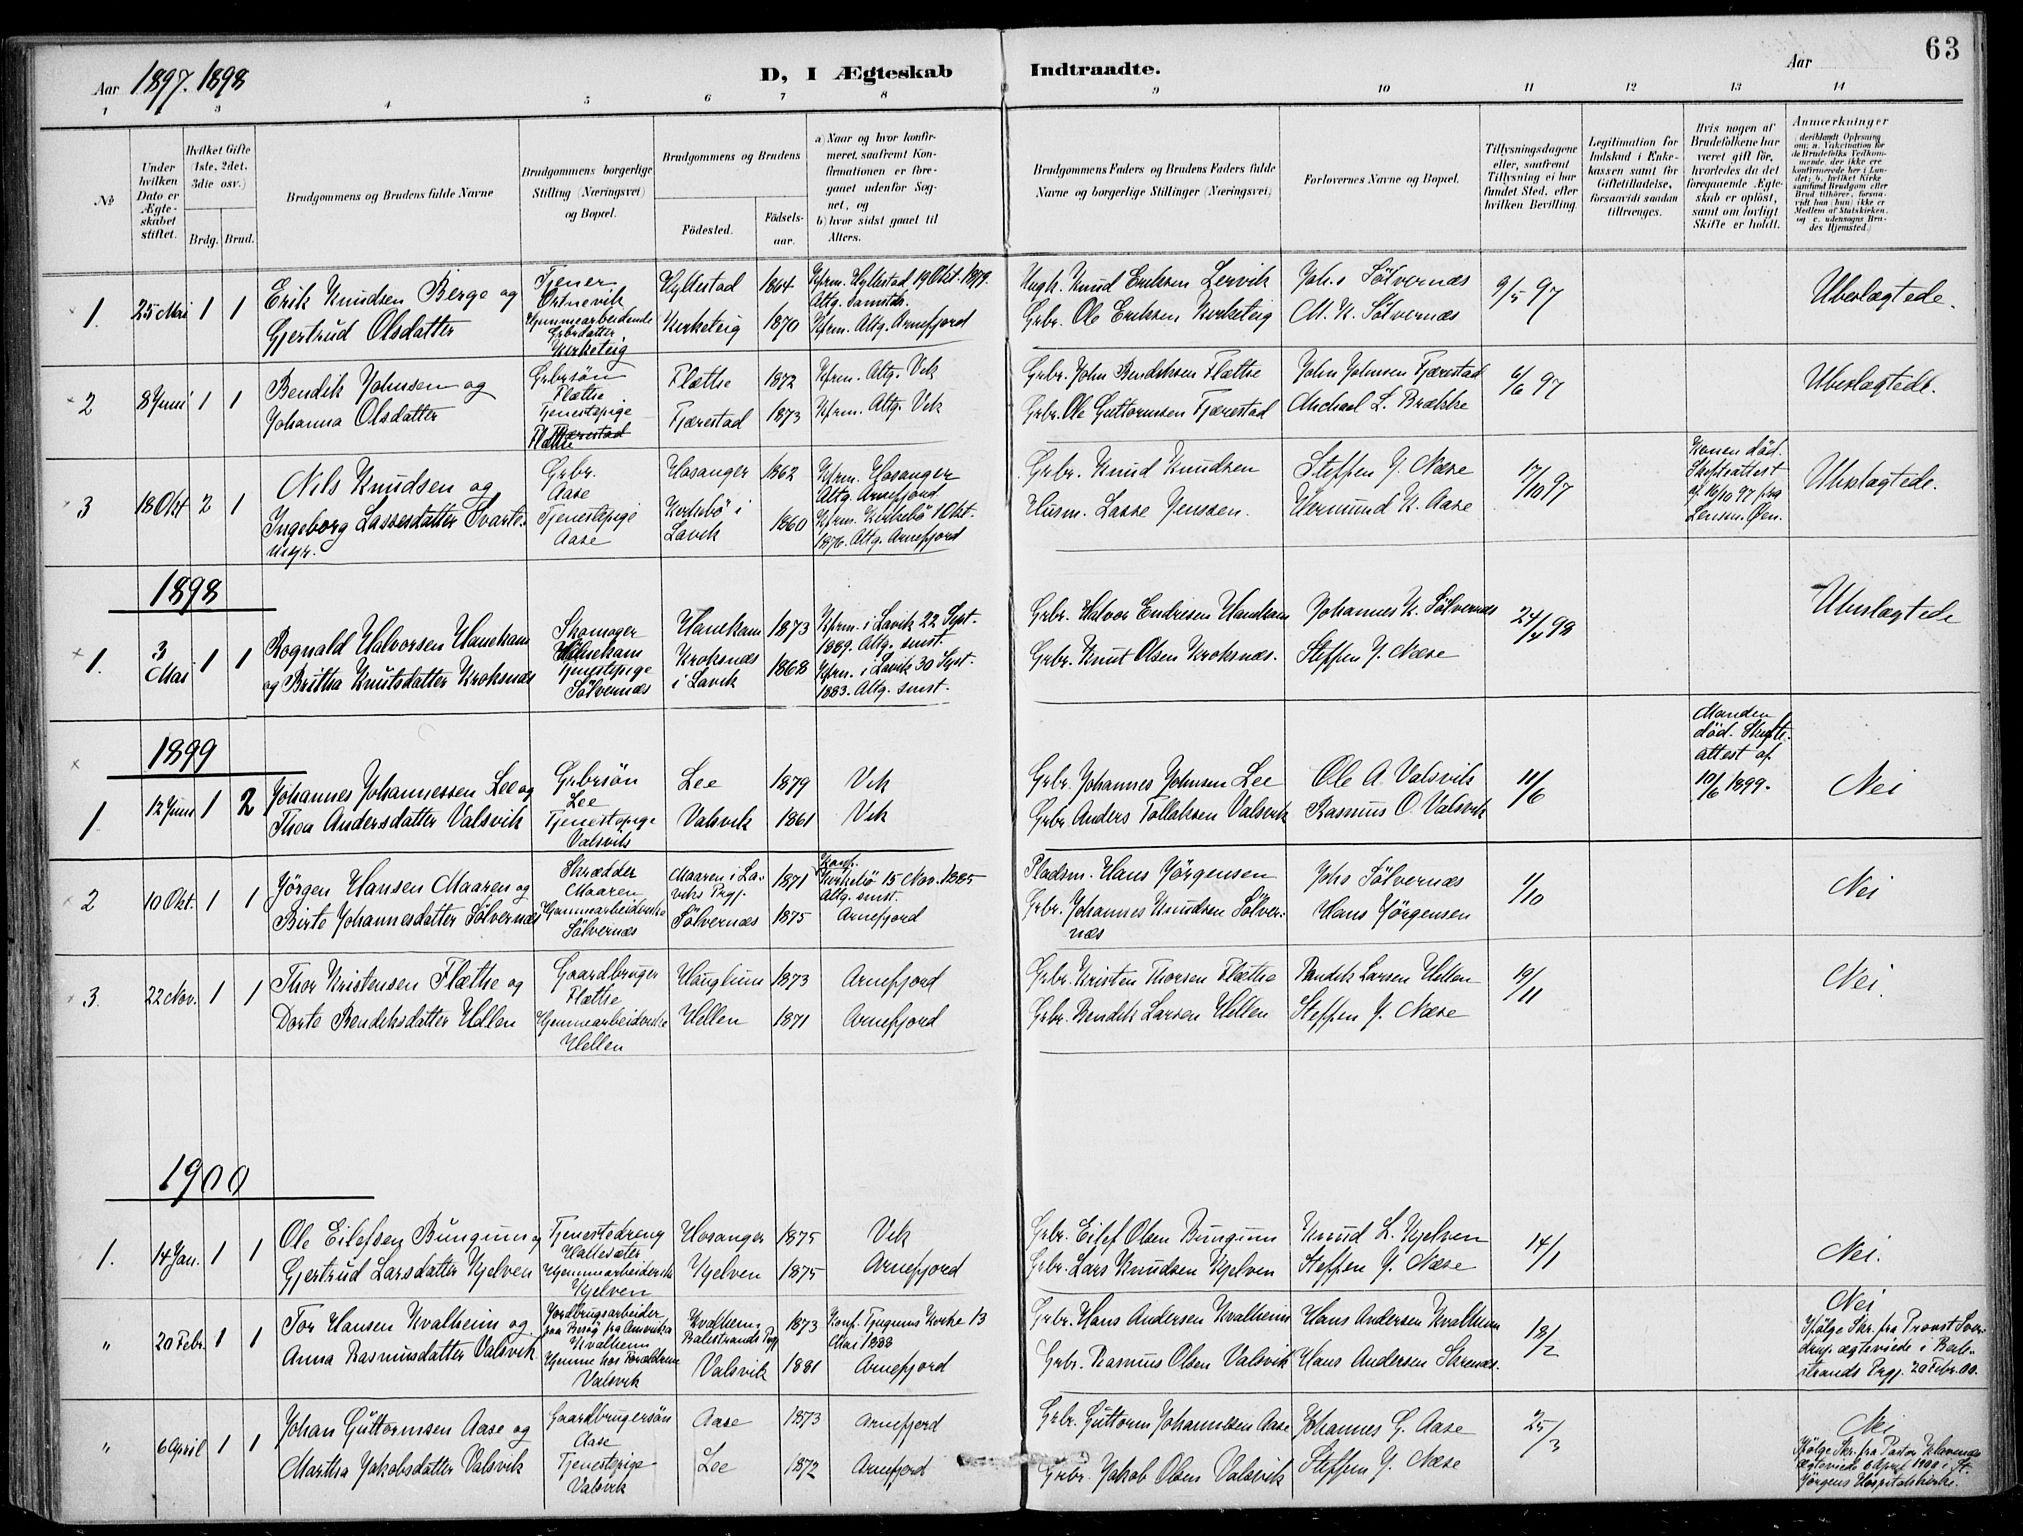 63
Aar 1897. 1898
D, I Ægteskab Indtraadte.
Aar
1 3 4 5 6 7 8 9 10 11 12 13 14
No
Under hvilken Dato er Ægteskabet stiftet.
Hvilket Gifte (1ste, 2det, 3die osv.)
Brdg. Brud.
Brudgommens og Brudens fulde Navne
Brudgommens borgerlige Stilling (Næringsvei) og Bopæl.
Brudgommens og Brudens
Fødested.
Fødselsaar.
a) Naar og hvor konfirmeret, saafremt Konfirmationen er foregaaet udenfor Sognet, og
b) hvor sidst gaaet til Alters.
Brudgommens Faders og Brudens Faders fulde Navne og borgerlige Stillinger (Næringsvei)
Forlovernes Navne og Bopæl.
Tillysningsdagene eller, saafremt Tillysning ei har fundet Sted, efter hvilken Bevilling.
Legitimation for Indskud i Enkekassen samt for Giftetilladelse, forsaavidt saadan tiltrænges.
Hvis nogen af Brudefolkene har været gift før, hvorledes da det foregaaende Ægteskab er opløst, samt om lovligt Skifte er holdt.
Anmærkninger
1. 25 Mai 1 1 Erik Knudsen Berge og
Gjertrud Olsdatter
Tjener
Ortnevik
Hjemmearbeidende
Grbrdatter
Kirketeig
Hyllestad 1864
Kirketeig 1870
Kfrm. Hyllestad 19 Okt. 1879.
Altg. samstds.
Kfrm. Altg. Arnefjord
Ungk. Knud Eriksen Lervik
Grbr. Ole Eriksen Kirketeig
Johs Sølvernæs
M. K. Sølvernæs
9/5 97
Ubeslægtede.
2 8 Juni 1 1 Bendik Johnsen og
Johanna Olsdatter
Grbrsøn
Flæthe
Tjenestepige
Fjærestad
Flæthe
Flæthe 1872
Fjærestad 1873
Kfrm. Altg. Vik
Kfrm. Altg. Vik
Grbr. John Bendiksen Flæthe
Grbr. Ole Guttormsen Fjærestad
John Johnsen Fjærestad
Michael L. Brække
6/6 97
Ubeslægtede.
3 18 Okt 2 1 Nils Knudsen og
Ingeborg Lassesdatter Svarte-
myr.
Grbr.
Aase
Tjenestepige
Aase
Hosanger 1862
Kirkebø i
Lavik 1860
Kfrm. Hosanger
Altg. Arnefjord
Kfrm. Kirkebø 1 Okt.
1876. Altg. Arnefjord
Grbr. Knud Knudsen
Husm. Lasse Jenssen.
Steffen J. Næse
Hermund K. Aase
17/10 97
Konen død.
Skifteattest
af 16/10 97 fra
Lensm. Øen.
Ubeslægtede.
1898
1. 3 Mai 1 1 Rognald Halvorsen Hanekam
og Britha Knutsdatter Kroksnæs
Skomager
Hanekam
Tjenestepige
Sølvernæs
Hanekam 1873
Kroksnæs
i Lavik 1868
Kfrm. i Lavik 22 Sept.
1889. Altg. smst.
Kfrm. i Lavik 30 Sept.
1883. Altg. smst.
Grbr. Halvor Endresen Hanekam
Grbr. Knut Olsen Kroksnæs.
Johannes K. Sølvernæs
Steffen J. Næse
24/4 98
Ubeslægtede
1899
1 12 Juni 1 2 Johannes Johannessen Lee og
Thea Andersdatter Valsvik
Grbrsøn
Lee
Tjenestepige
Valsvik
Lee 1879
Valsvik 1861
Vik
Vik
Grbr. Johannes Johnsen Lee
Grbr. Anders Tollaksen Valsvik
Ole A. Valsvik
Rasmus O. Valsvik
11/6
Manden
død. Skifte-
attest af
10/6 1899.
Nei
2 10 Okt. 1 1 Jørgen Hansen Maaren og
Birte Johannesdatter Sølvernæs
Skrædder
Maaren
Hjemmearbeidende
Sølvernæs
Maaren i La-
viks Prgj. 1871
Sølvernæs 1875
Konf.
Kirkebø 15 Nov. 1885
Altg. smst.
Arnefjord
Pladsm. Hans Jørgensen
Grbr. Johannes Knudsen Sølver-
næs
Johs Sølvernæs
Hans Jørgensen
1/10
Nei
3. 22 Nov. 1 1 Thor Kristensen Flæthe og
Dorte Bendiksdatter Hellen
Gaardbruger
Flæthe
Hjemmearbeidende
Hellen
Hauglum 1873
Hellen 1871
Arnefjord
Arnefjord
Grbr. Kristen Thorsen Flæthe
Grbr. Bendik Larsen Hellen
Bendik Larsen Hellen
Steffen J. Næse
19/11
Nei.
1900
1. 14 Jan. 1 1 Ole Eilefsen Bungum og
Gjertrud Larsdatter Kjelven
Tjenestedreng
Hallesæter
Hjemmearbeidende
Kjelven
Hosanger 1875
Kjelven 1875
Vik
Arnefjord
Grbr. Eilef Olsen Bungum
Grbr. Lars Knudsen Kjelven
Knud L. Kjelven
Steffen J. Næse
14/1
Nei.
" 20 Febr. 1 1 Tor Hansen Kvalheim og
Anna Rasmusdatter Valsvik
Jordbrugsarbeider
paa Besøg fra Amerika
Kvalheim
Hjemme hos Forældrene
Valsvik
Kvalheim
Balestrands Prgj 1873
Valsvik 1881
Konf. Tjugums Kirke 13
Mai 1888
Arnefjord
Grbr. Hans Andersen Kvalheim
Grbr. Rasmus Olsen Valsvik
Hans Andersen Kvalheim
Hans Andersen Skrenæs.
18/2
Nei
Ifølge Skr. fra Provst Sver-
drup ægteviede i Bale-
strands Prgj. 20 Febr. 00.
" 6 April 1 1 Johan Guttormsen Aase og
Martha Jakobsdatter Valsvik
Gaardbrugersøn
Aase
Tjenestepige
Valsvik
Aase 1873
Lee 1872
Arnefjord
Arnefjord
Grbr. Guttorm Johannesen Aase
Grbr. Jakob Olsen Valsvik
Johannes G. Aase
Steffen J. Næse
25/3
Nei
Ifølge Skr. fra Pastor Klaveness
ægteviede 6 April 1900 i St.
Jørgens Hospitalskirke.